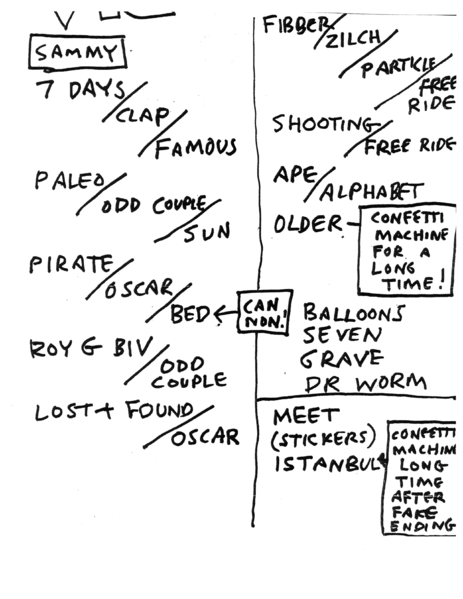 SAMMY
7 DAYS/
CLAP/
FAMOUS
PALEO/
ODD COUPLE/
SUN
PIRATE/
OSCAR/
BED
CAN
NON!
ROY G BIV/
ODD
COUPLE
LOST + FOUND/
OSCAR
FIBBER/
ZILCH/
PARTICLE/
FREE
RIDE
SHOOTING/
FREE RIDE
APE/
ALPHABET
OLDER-
CONFETTI
MACHINE
FOR A
LONG
TIME!
BALLOONS
SEVEN
GRAVE
DR WORM
MEET
(STICKERS)
ISTANBUL
CONFETTI
MACHINE
LONG
TIME
AFTER
FAKE
ENDING